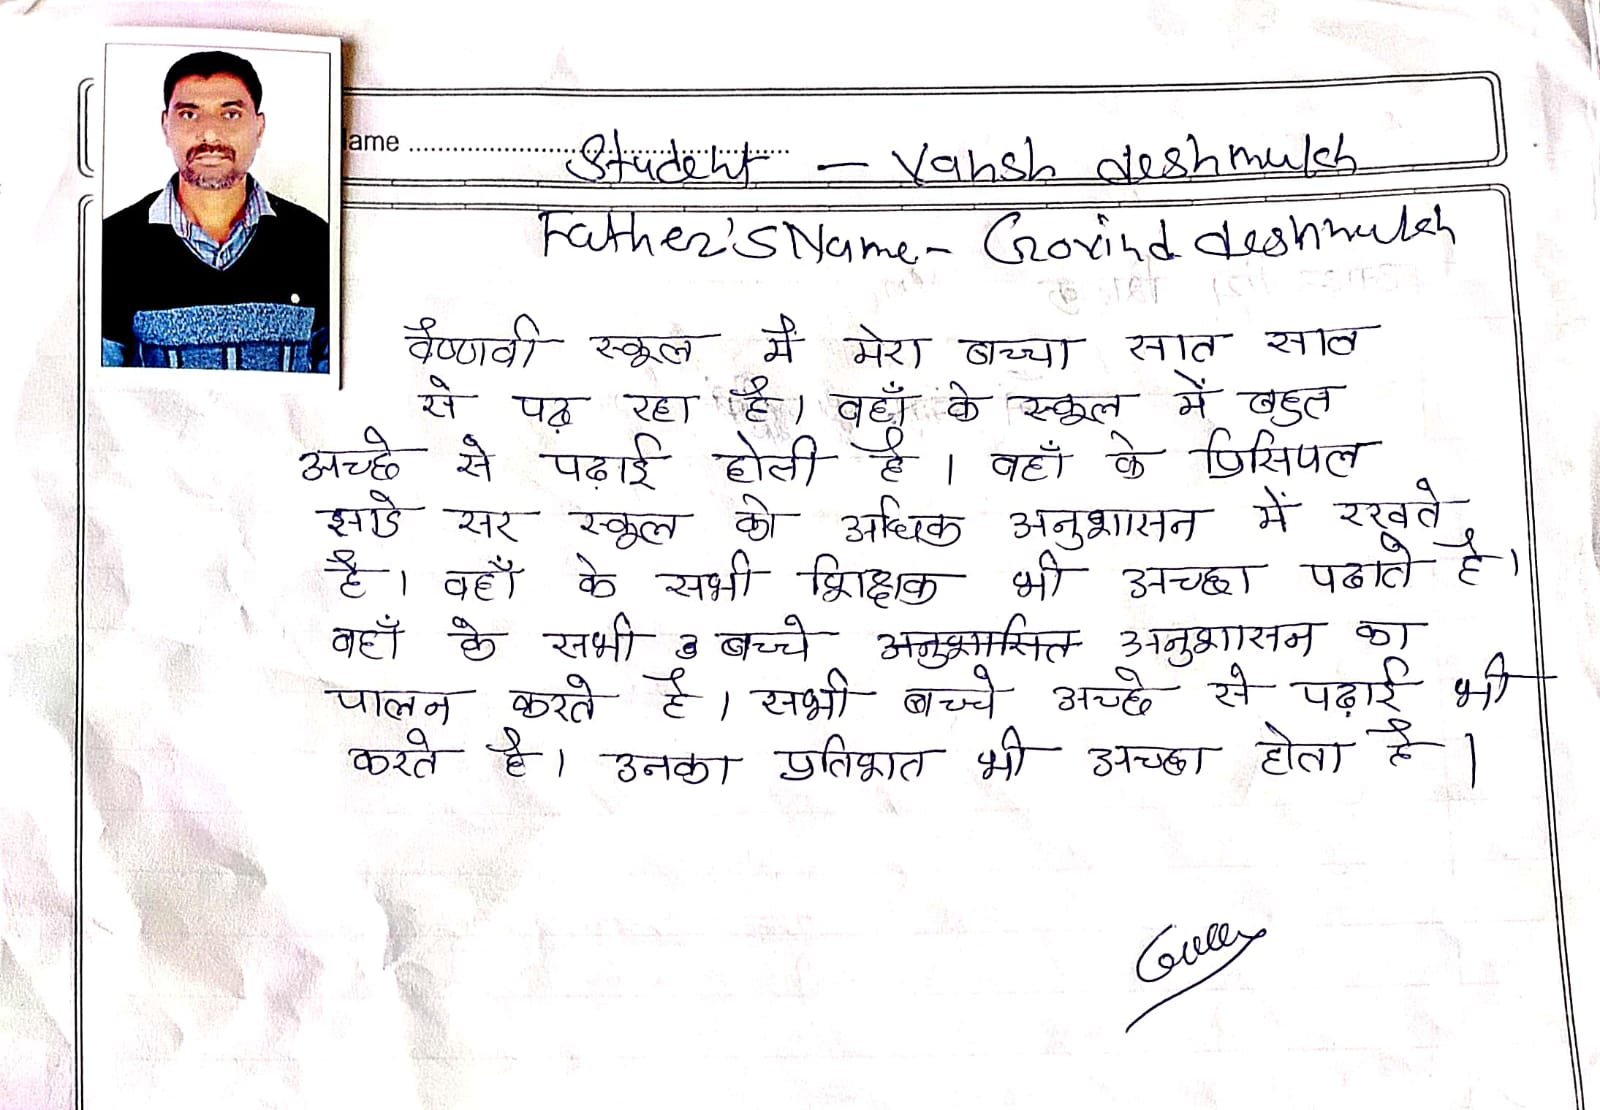 ame ........................................
Student - Vahsh deshmukh
Father's Name - Govind deshmukh
वैष्णवी स्कूल में मेरा बच्चा सात साल
से पढ़ रहा है। वहाँ के स्कूल में बहुत
अच्छे से पढ़ाई होती है । वहाँ के प्रिसिपल
झाडे सर स्कूल को अधिक अनुशासन में रखते
है। वहाँ के सभी शिक्षक भी अच्छा पढाते है।
वहाँ के सभी बच्चे अनुशासित अनुशासन का
पालन करते है। सभी बच्चे अच्छे से पढ़ाई भी
करते है। उनका प्रतिशत भी अच्छा होता है |